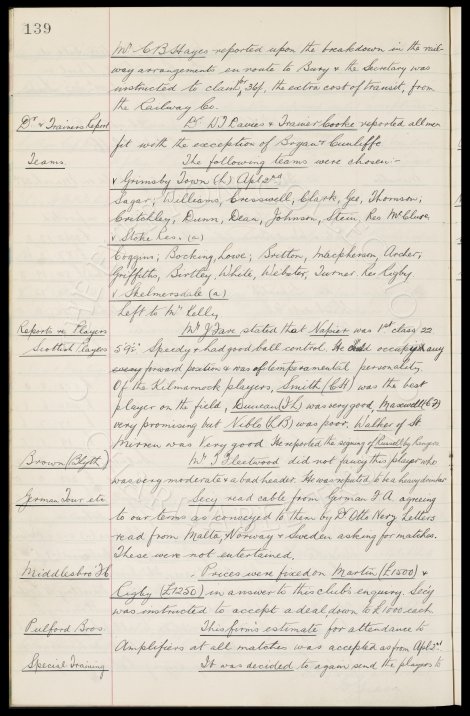 139
Mr C B Hayes reported upon the breakdown in the rail-
way arrangements en route to Bury & the Secretary was
instructed to claim for 36/-, the extra cost of transit, from
the Railway Co.
Dr & Trainers Report
Dr. D J Davies & Trainer Cooke reported all men
fit with the exception of Bryan & Cunliffe
Teams.
The following teams were chosen:-
v Grimsby Town (h) Apl 2nd
Sagar; Williams, Cresswell; Clark, Gee, Thomson;
Critchley, Dunn, Dean, Johnson, Stein, Res McClure
v Stoke Res. (a)
Coggins; Bocking, Lowe; Britton, Macpherson, Archer;
Griffiths, Birtley, White, Webster, Turner. Res Rigby
v Skelmersdale (a)
Left to Mr Kelly
Reports re Players
Mr J Fare stated that Napier was 1st class 22
Scottish Players
5 9½" Speedy & had good ball control. He could occupy any
every forward position & was of temperamental personality
Of the Kilmarnock players, Smith (CH) was the best
player on the field, Duncan (IL) was very good, Maxwell
very promising but Nibloe (LB) was poor. Walker of St.
Mirren was very good He reported the signing of Russell by Rangers
Brown (Blyth)
Mr J Fleetwood did not fancy this player who
was very moderate & a bad header. He was reputed to be a heavy drinker
German Tour etc
Secy read cable from German F.A. agreeing
to our terms as conveyed to them by Dr Otto Nerz Letters
read from Malta, Norway & Sweden asking for matches.
These were not entertained.
Middlesbro' Fc
Prices were fixed on Martin (£1500) &
Rigby (£1250) in answer to this club's enquiry. Secy
was instructed to accept a deal down to £1000 each
Pulford Bros.
This firm's estimate for attendance to
Amplifiers at all matches was accepted as from Apl 2nd.
Special Training
It was decided to again send the players to